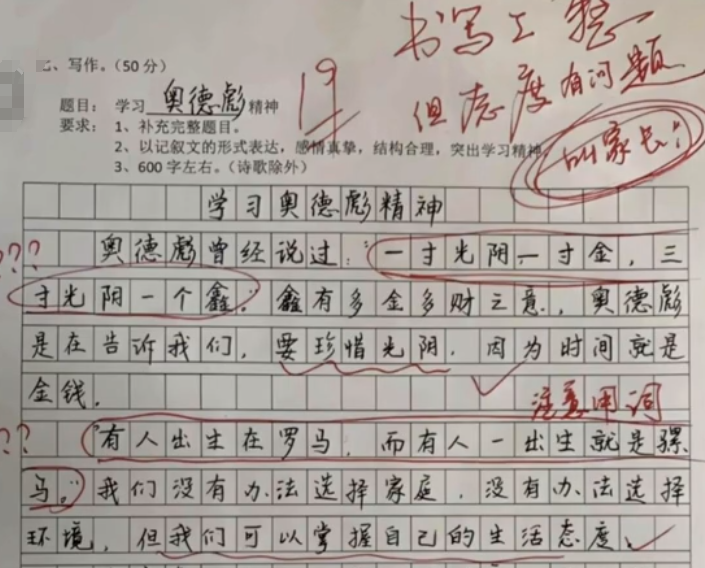 书写工整
但态度有问题
叫家长！
19
七、写作。（50分）
题目： 学习 奥德彪 精神
要求： 1、补充完整题目。
2、以记叙文的形式表达，感情真挚，结构合理，突出学习精神
3、600字左右。（诗歌除外）
学习奥德彪精神
???
奥德彪曾经说过：“一寸光阴一寸金，三
寸光阴一个鑫。”鑫有多金多财之意，奥德彪
是在告诉我们，要珍惜光阴，因为时间就是
金钱。
注意用词
??
“有人出生在罗马，而有人一出生就是骡
马。”我们没有办法选择家庭，没有办法选择
环境，但我们可以掌握自己的生活态度。